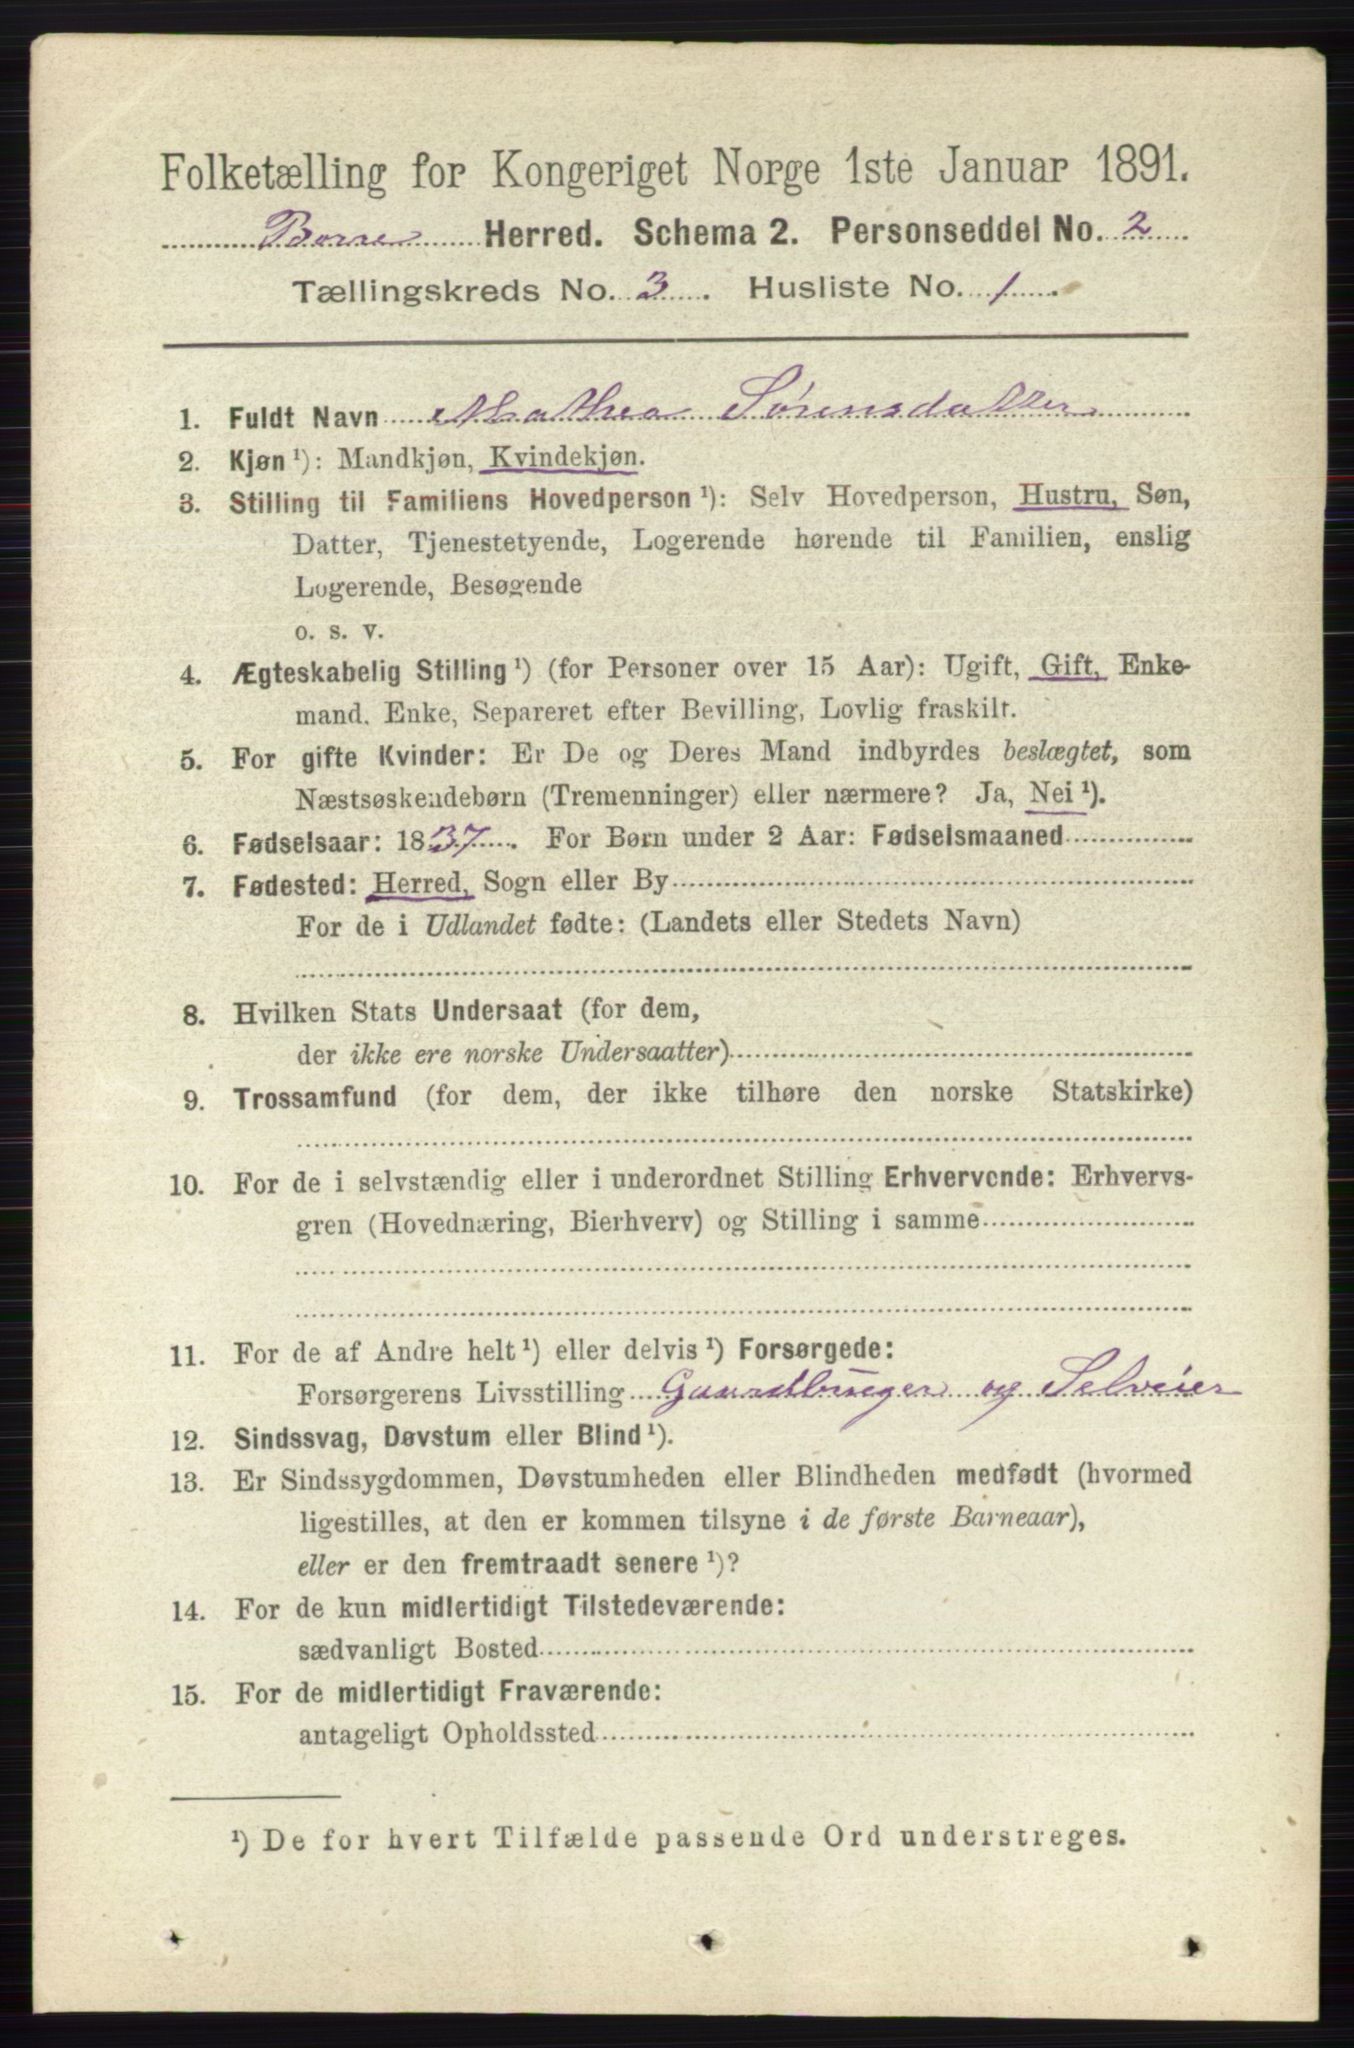 Folketælling for Kongeriget Norge 1ste Januar 1891.
Borre Herred. Schema 2. Personseddel No. 2
Tællingskreds No. 3. Husliste No. 1.
1. Fuldt Navn Mathea Sørensdatter
2. Kjøn ¹): Mandkjøn, Kvindekjøn.
3. Stilling til Familiens Hovedperson ¹): Selv Hovedperson, Hustru, Søn,
Datter, Tjenestetyende, Logerende hørende til Familien, enslig
Logerende, Besøgende
o. s. v.
4. Ægteskabelig Stilling ¹) (for Personer over 15 Aar): Ugift, Gift, Enke-
mand, Enke, Separeret efter Bevilling, Lovlig fraskilt.
5. For gifte Kvinder: Er De og Deres Mand indbyrdes beslægtet, som
Næstsøskendebørn (Tremenninger) eller nærmere? Ja, Nei ¹).
6. Fødselsaar: 1837. For Børn under 2 Aar: Fødselsmaaned
7. Fødested: Herred, Sogn eller By
For de i Udlandet fødte: (Landets eller Stedets Navn)
8. Hvilken Stats Undersaat (for dem,
der ikke ere norske Undersaatter)
9. Trossamfund (for dem, der ikke tilhøre den norske Statskirke)
10. For de i selvstændig eller i underordnet Stilling Erhvervende: Erhvervs-
gren (Hovednæring, Bierhverv) og Stilling i samme
11. For de af Andre helt ¹) eller delvis ¹) Forsørgede:
Forsørgerens Livsstilling Gaardbruger og Selveier
12. Sindssvag, Døvstum eller Blind ¹).
13. Er Sindssygdommen, Døvstumheden eller Blindheden medfødt (hvormed
ligestilles, at den er kommen tilsyne i de første Barneaar),
eller er den fremtraadt senere ¹)?
14. For de kun midlertidigt Tilstedeværende:
sædvanligt Bosted
15. For de midlertidigt Fraværende:
antageligt Opholdssted
¹) De for hvert Tilfælde passende Ord understreges.